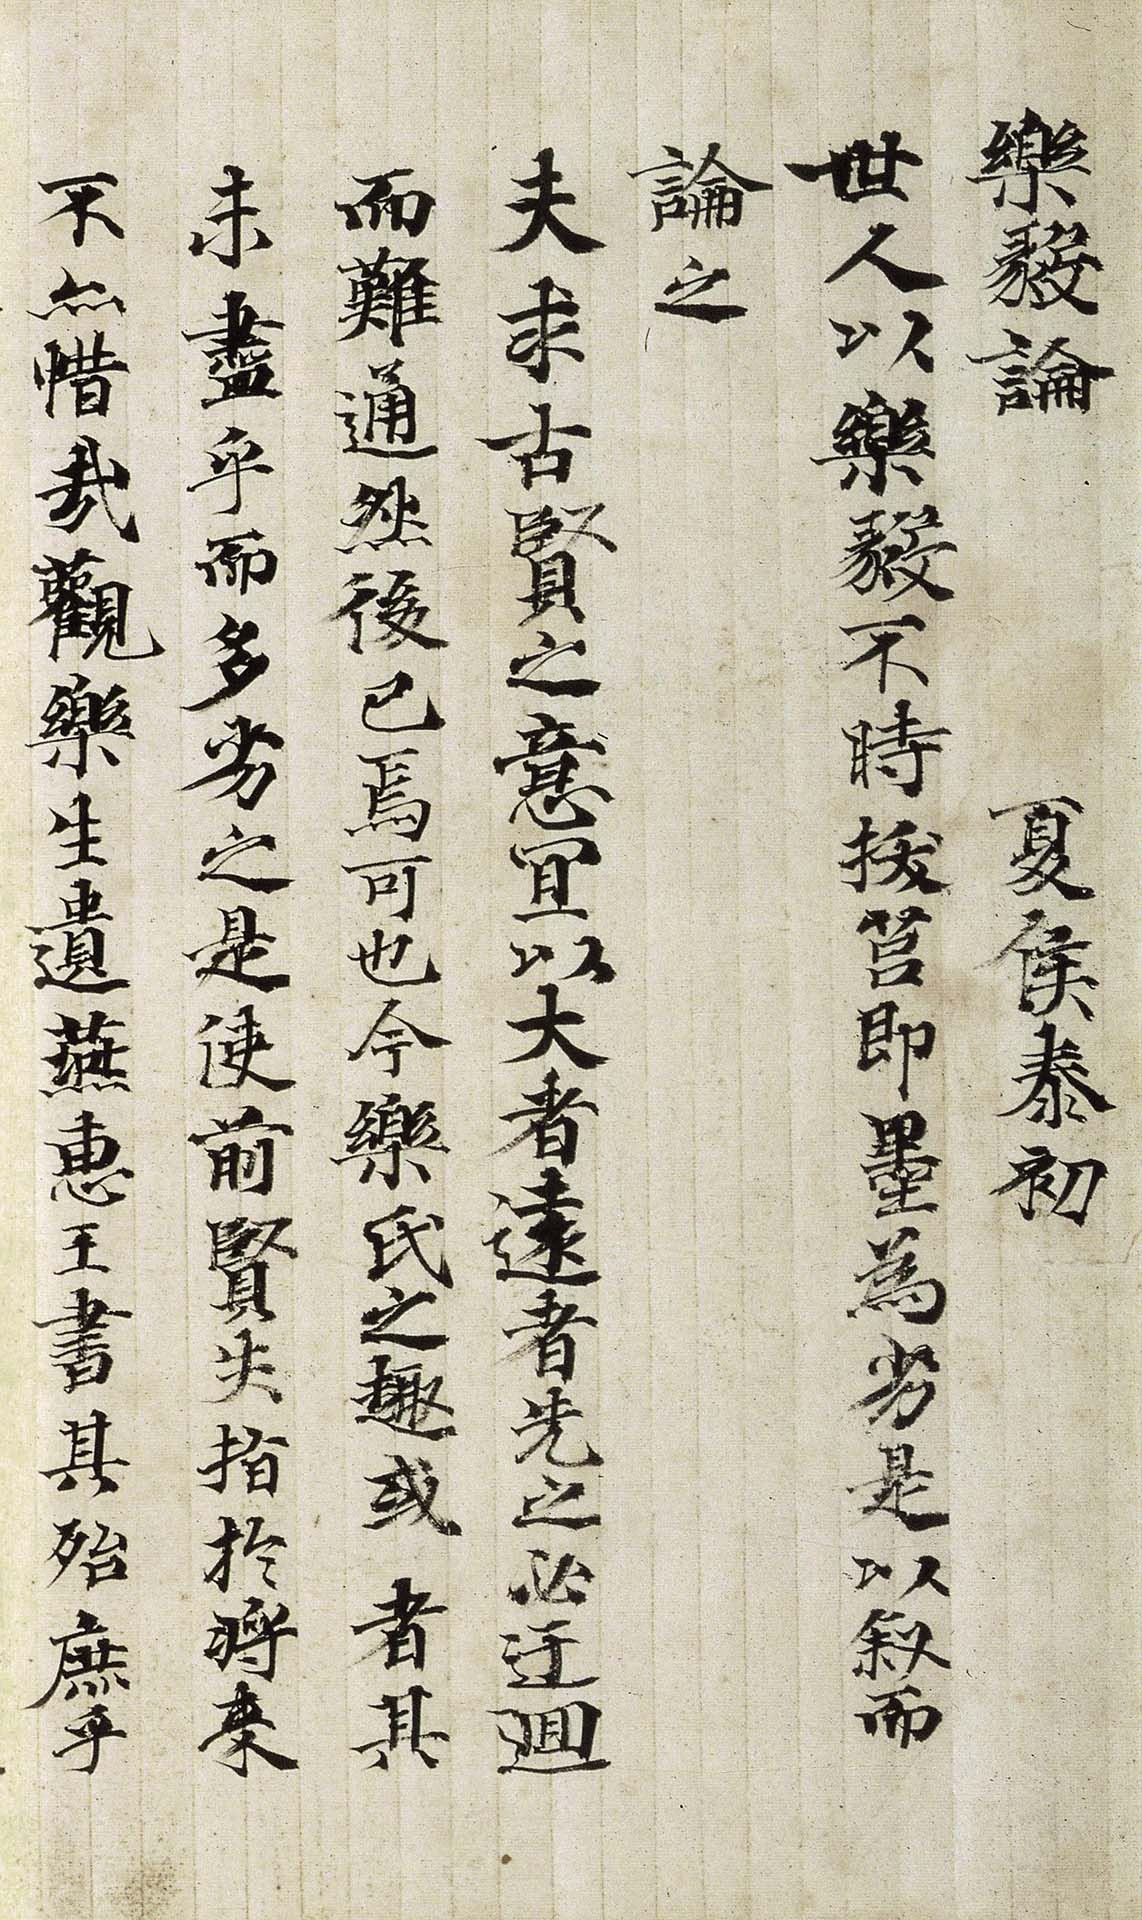 樂毅論 夏侯泰初
世人以樂毅不時拔莒即墨為劣是以叙而
論之
夫求古賢之意宜以大者遠者先之必迂迴
而難通然後已焉可也今樂氏之趣或者其
未盡乎而多劣之是使前賢失指於將來
不亦惜哉觀樂生遺燕惠王書其殆庶乎